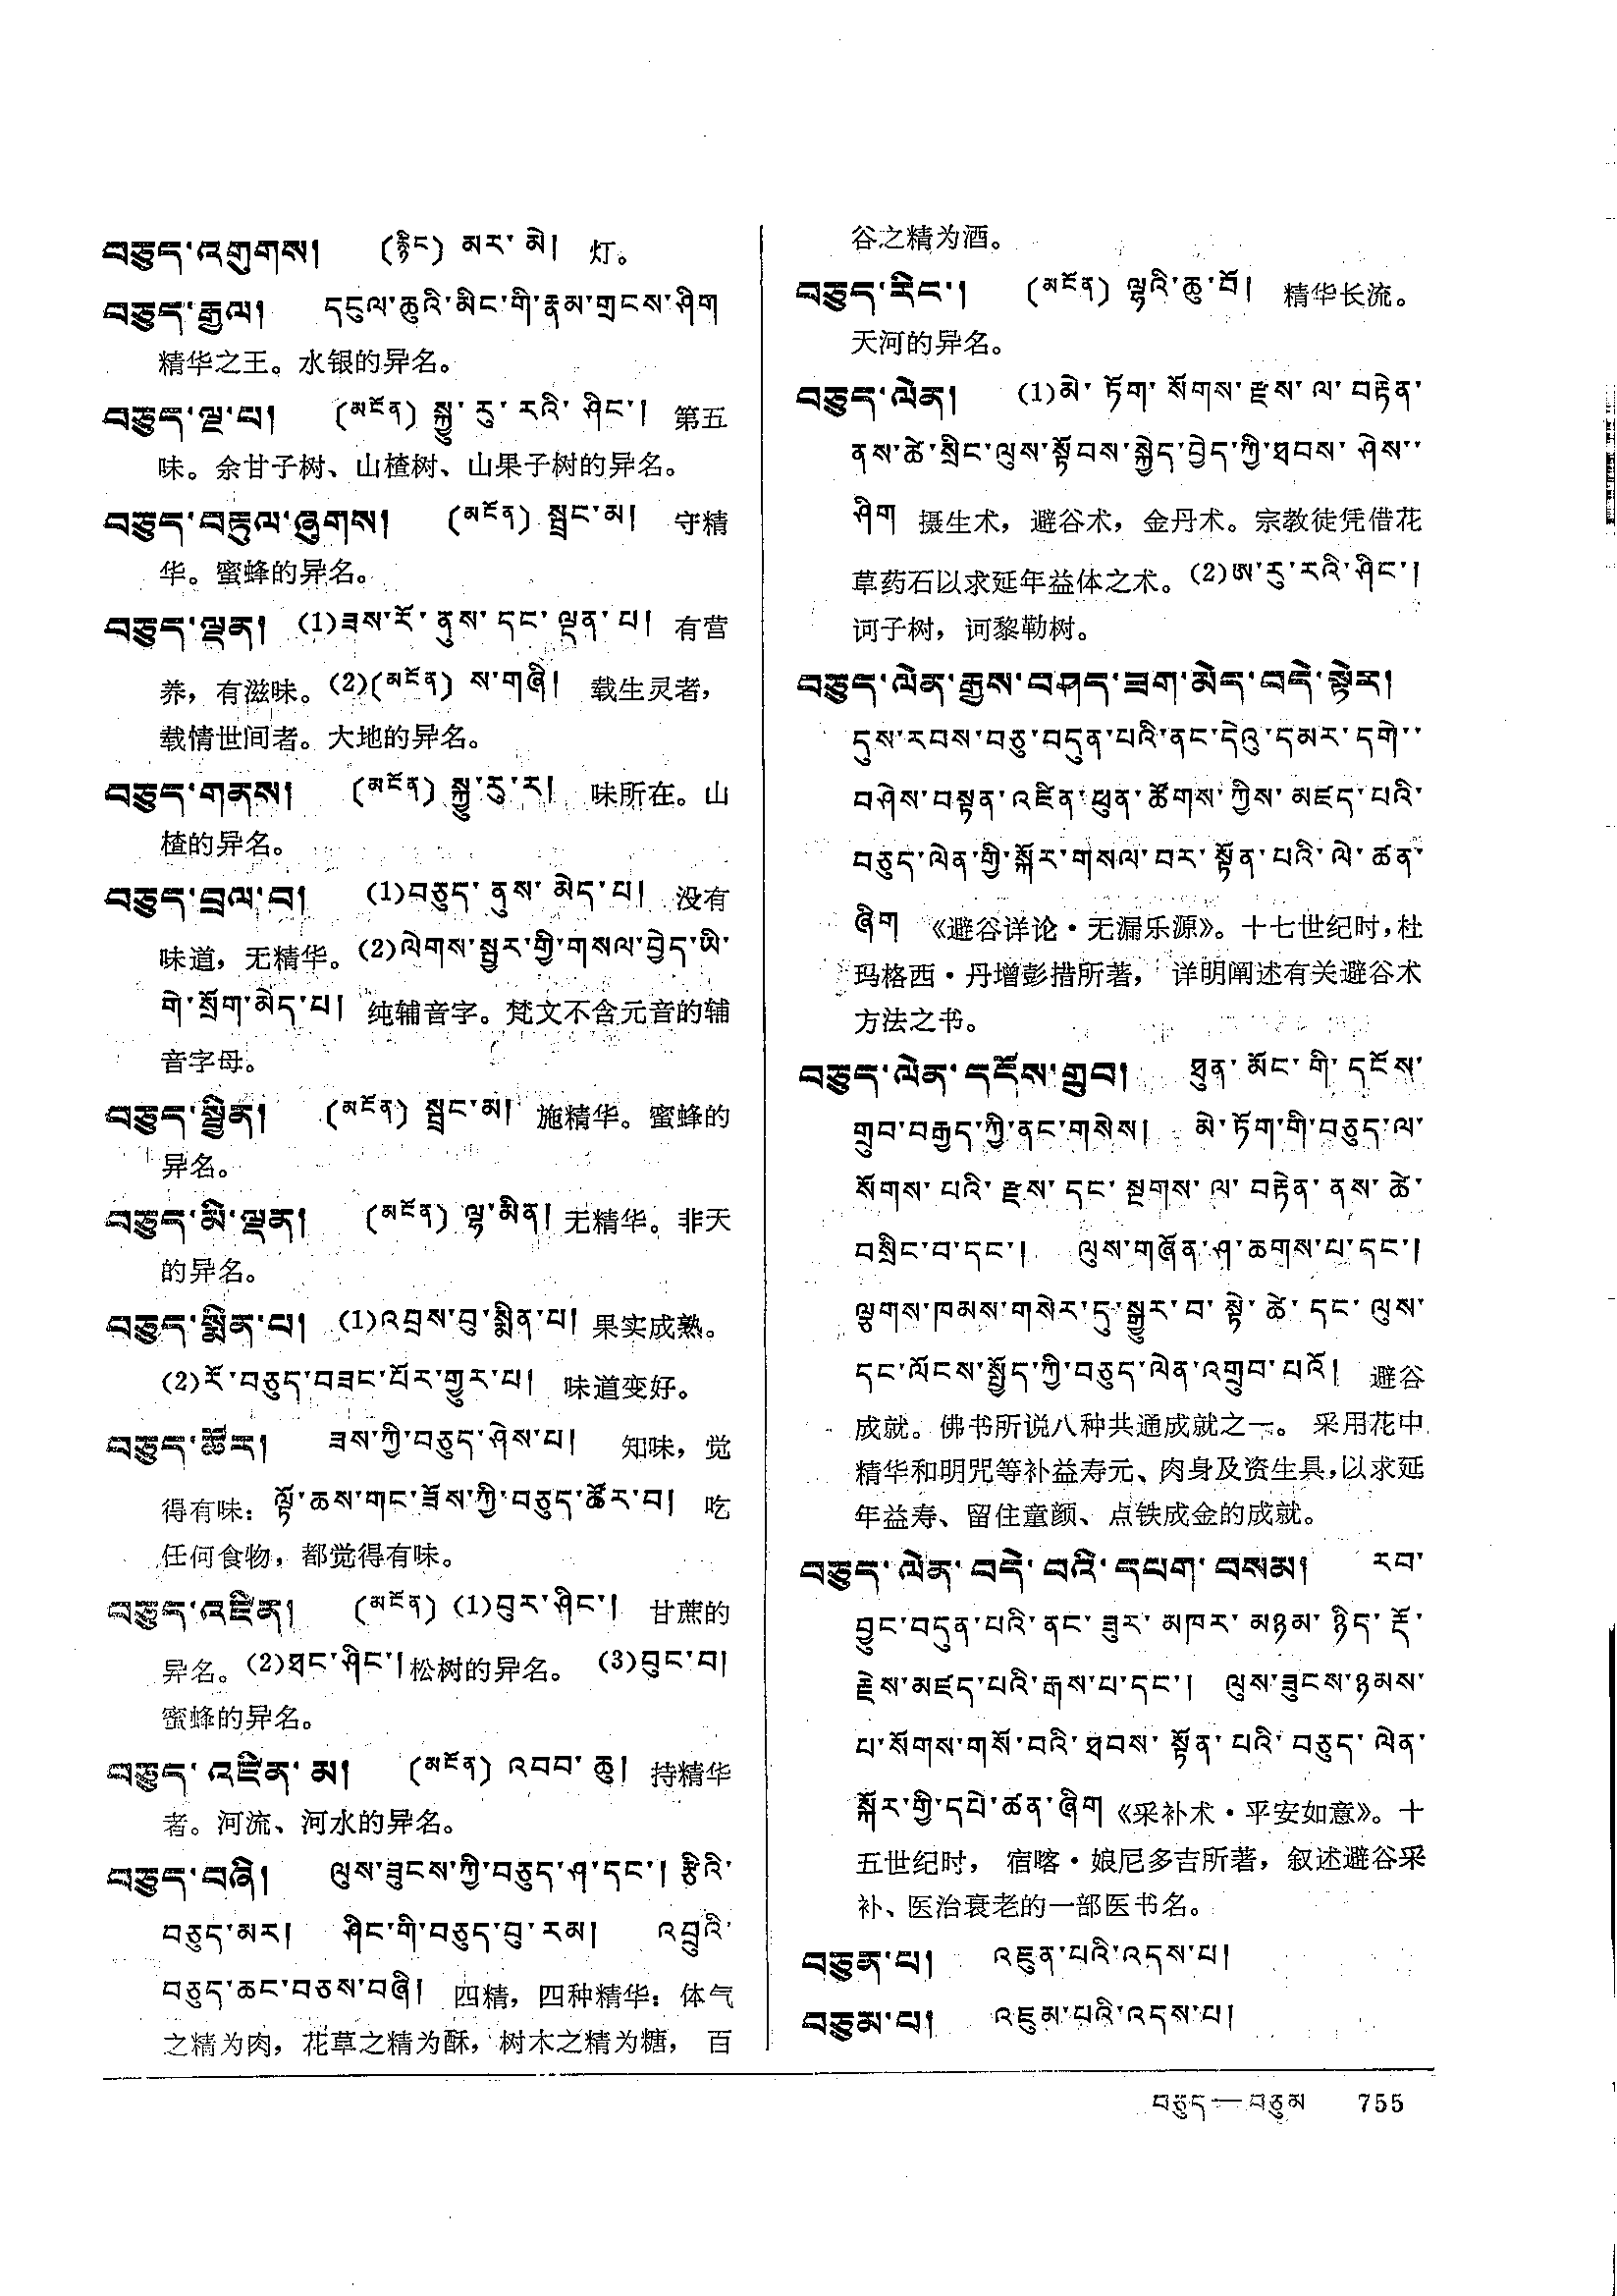 བཅུད་འགུགས། (རྙིང) མར་མེ། 灯。
བཅུད་རྒྱལ། དངུལ་ཆུའི་མིང་གི་རྣམ་གྲངས་ཤིག
精华之王。水银的异名。
བཅུད་ལྔ་པ། (མངོན) སྐྱུ་རུ་རའི་ཤིང་། 第五
味。余甘子树、山楂树、山果子树的异名。
བཅུད་བརྟུལ་ཞུགས། (མངོན) སྦྲང་མ། 守精
华。蜜蜂的异名。
བཅུད་ལྡན། (1)ཟས་རོ་ནུས་དང་ལྡན་པ། 有营
养，有滋味。(2)(མངོན) ས་གཞི། 载生灵者，
载情世间者。大地的异名。
བཅུད་གནས། (མངོན) སྐྱུ་རུ་ར། 味所在。山
楂的异名。
བཅུད་བྲལ་བ། (1)བཅུད་ནུས་མེད་པ། 没有
味道，无精华。(2)ལེགས་སྦྱར་གྱི་གསལ་བྱེད་ཡི་
གེ་སྲོག་མེད་པ། 纯辅音字。梵文不含元音的辅
音字母。
བཅུད་སྦྱིན། (མངོན) སྦྲང་མ། 施精华。蜜蜂的
异名。
བཅུད་མི་ལྡན། (མངོན) ལྷ་མིན། 无精华。非天
的异名。
བཅུད་སྨིན་པ། (1)འབྲས་བུ་སྨིན་པ། 果实成熟。
(2)རོ་བཅུད་བཟང་པོར་གྱུར་པ། 味道变好。
བཅུད་ཚོར། ཟས་ཀྱི་བཅུད་ཤེས་པ། 知味，觉
得有味：ལྟོ་ཆས་གང་ཟོས་ཀྱི་བཅུད་ཚོར་བ། 吃
任何食物，都觉得有味。
བཅུད་འཛིན། (མངོན) (1)བུར་ཤིང་། 甘蔗的
异名。(2)ཐང་ཤིང་། 松树的异名。 (3)བུང་བ།
蜜蜂的异名。
བཅུད་འཛིན་མ། (མངོན) འབབ་ཆུ། 持精华
者。河流、河水的异名。
བཅུད་བཞི། ལུས་ཟུངས་ཀྱི་བཅུད་ཤ་དང་། རྩིའི་
བཅུད་མར། ཤིང་གི་བཅུད་བུ་རམ། འབྲུའི་
བཅུད་ཆང་བཅས་བཞི། 四精，四种精华：体气
之精为肉，花草之精为酥，树木之精为糖， 百
谷之精为酒。
བཅུད་རིང་། (མངོན) ལྷའི་ཆུ་བོ། 精华长流。
天河的异名。
བཅུད་ལེན། (1)མེ་ཏོག་སོགས་རྫས་ལ་བརྟེན་
ནས་ཚེ་སྲིང་ལུས་སྟོབས་སྐྱེད་བྱེད་ཀྱི་ཐབས་ཤེས་་
ཤིག 摄生术，避谷术，金丹术。宗教徒凭借花
草药石以求延年益体之术。(2)ཨ་རུ་རའི་ཤིང་།
诃子树，诃黎勒树。
བཅུད་ལེན་རྒྱས་བཤད་ཟག་མེད་བདེ་སྟེར།
དུས་རབས་བཅུ་བདུན་པའི་ནང་དེའུ་དམར་དགེ་་
བཤེས་བསྟན་འཛིན་ཕུན་ཚོགས་ཀྱིས་མཛད་པའི་
བཅུད་ལེན་གྱི་སྐོར་གསལ་བར་སྟོན་པའི་ལེ་ཚན་
ཞིག 《避谷详论·无漏乐源》。十七世纪时，杜
玛格西·丹增彭措所著， 详明阐述有关避谷术
方法之书。
བཅུད་ལེན་དངོས་གྲུབ། ཐུན་མོང་གི་དངོས་
གྲུབ་བརྒྱད་ཀྱི་ནང་གསེས། མེ་ཏོག་གི་བཅུད་ལ་
སོགས་པའི་རྫས་དང་སྔགས་ལ་བརྟེན་ནས་ཚེ་
བསྲིང་བ་དང་། ལུས་གཞོན་ཤ་ཆགས་པ་དང་།
ལྕགས་ཁམས་གསེར་དུ་སྒྱུར་བ་སྟེ་ཚེ་དང་ལུས་
དང་ལོངས་སྤྱོད་ཀྱི་བཅུད་ལེན་འགྲུབ་པའོ། 避谷
成就。佛书所说八种共通成就之一。 采用花中
精华和明咒等补益寿元、肉身及资生具，以求延
年益寿、留住童颜、点铁成金的成就。
བཅུད་ལེན་བདེ་བའི་དཔག་བསམ། རབ་
བྱུང་བདུན་པའི་ནང་ཟུར་མཁར་མཉམ་ཉིད་རྡོ་
རྗེས་མཛད་པའི་རྒས་པ་དང་། ལུས་ཟུངས་ཉམས་
པ་སོགས་གསོ་བའི་ཐབས་སྟོན་པའི་བཅུད་ལེན་
སྐོར་གྱི་དཔེ་ཚན་ཞིག 《采补术·平安如意》。十
五世纪时， 宿喀·娘尼多吉所著，叙述避谷采
补、医治衰老的一部医书名。
བཅུན་པ། འཇུན་པའི་འདས་པ།
བཅུམ་པ། འཇུམ་པའི་འདས་པ།
བཅུད—བཅུམ 755